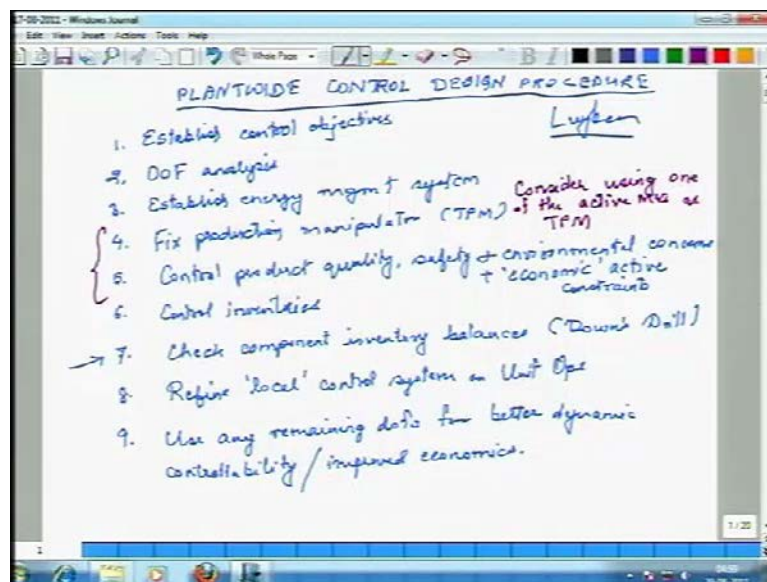 17-08-2011 - Windows Journal
Edit View Insert Actions Tools Help
Whole Page
B I
PLANTWIDE CONTROL DESIGN PROCEDURE
Luyben
1. Establish control objectives
2. DOF analysis
3. Establish energy mgmt system
4. Fix production manipulator (TPM)
Consider using one
of the active MVs as
TPM
5. Control product quality, safety + environmental concerns
+ 'economic' active
constraints
6. Control inventories
→ 7. Check component inventory balances (Down's Drill)
8. Refine 'local' control systems on Unit Ops
9. Use any remaining dofs for better dynamic
controllability / improved economics.
1 / 20